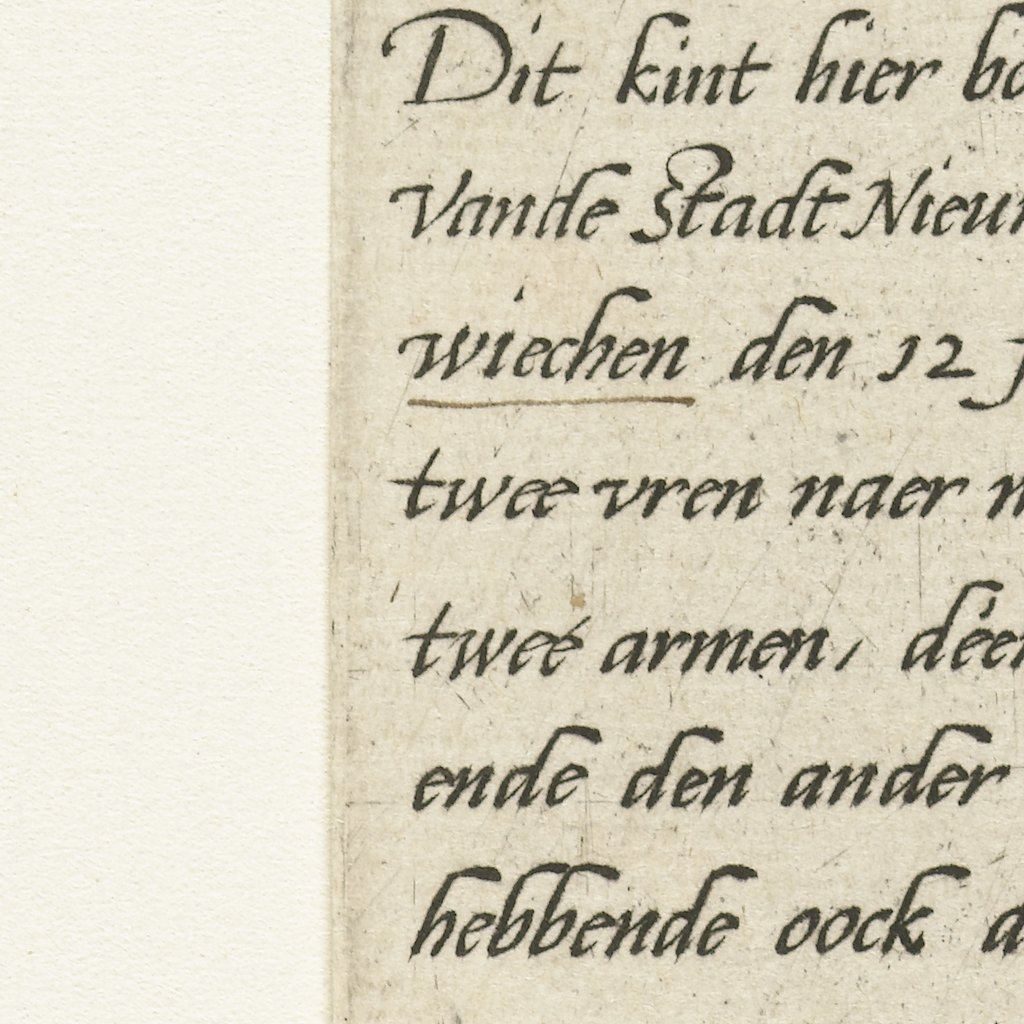 Dit kint hier
Vande Stadt
wiechen den 12
twee vren naer
tweé armen,
ende den ander
hebbende oock